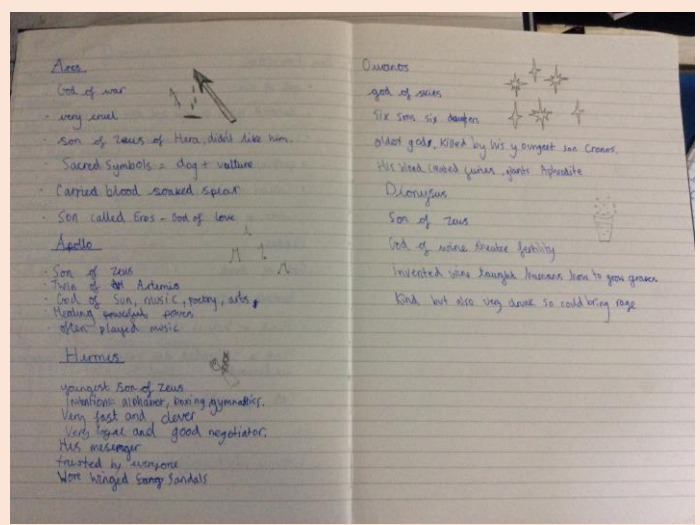 Ares
God of war
· very cruel
· son of Zeus of Hera, didn't like him.
· Sacred Symbols = dog + vulture
· Carried blood soaked spear
· Son called Eros - God of love
Apollo
· Son of Zeus
· Twin of Artemis
· God of Sun, music, poetry, arts,
· Healing powerful powers
· often played music
Hermes
youngest son of Zeus
Inventions= alphabet, boxing, gymnastics.
Very fast and clever
Very loyal and good negotiator.
His messenger
trusted by everyone
Wore winged Sandals
Ouanos
god of skies
Six sons six daughters
oldest gods, killed by his youngest son Cronos.
His blood created furies, giants Aphrodite
Dionysus
Son of Zeus
God of wine theatre fertility
Invented wine taught humans how to grow grapes
Kind, but also very drunk so could bring rage